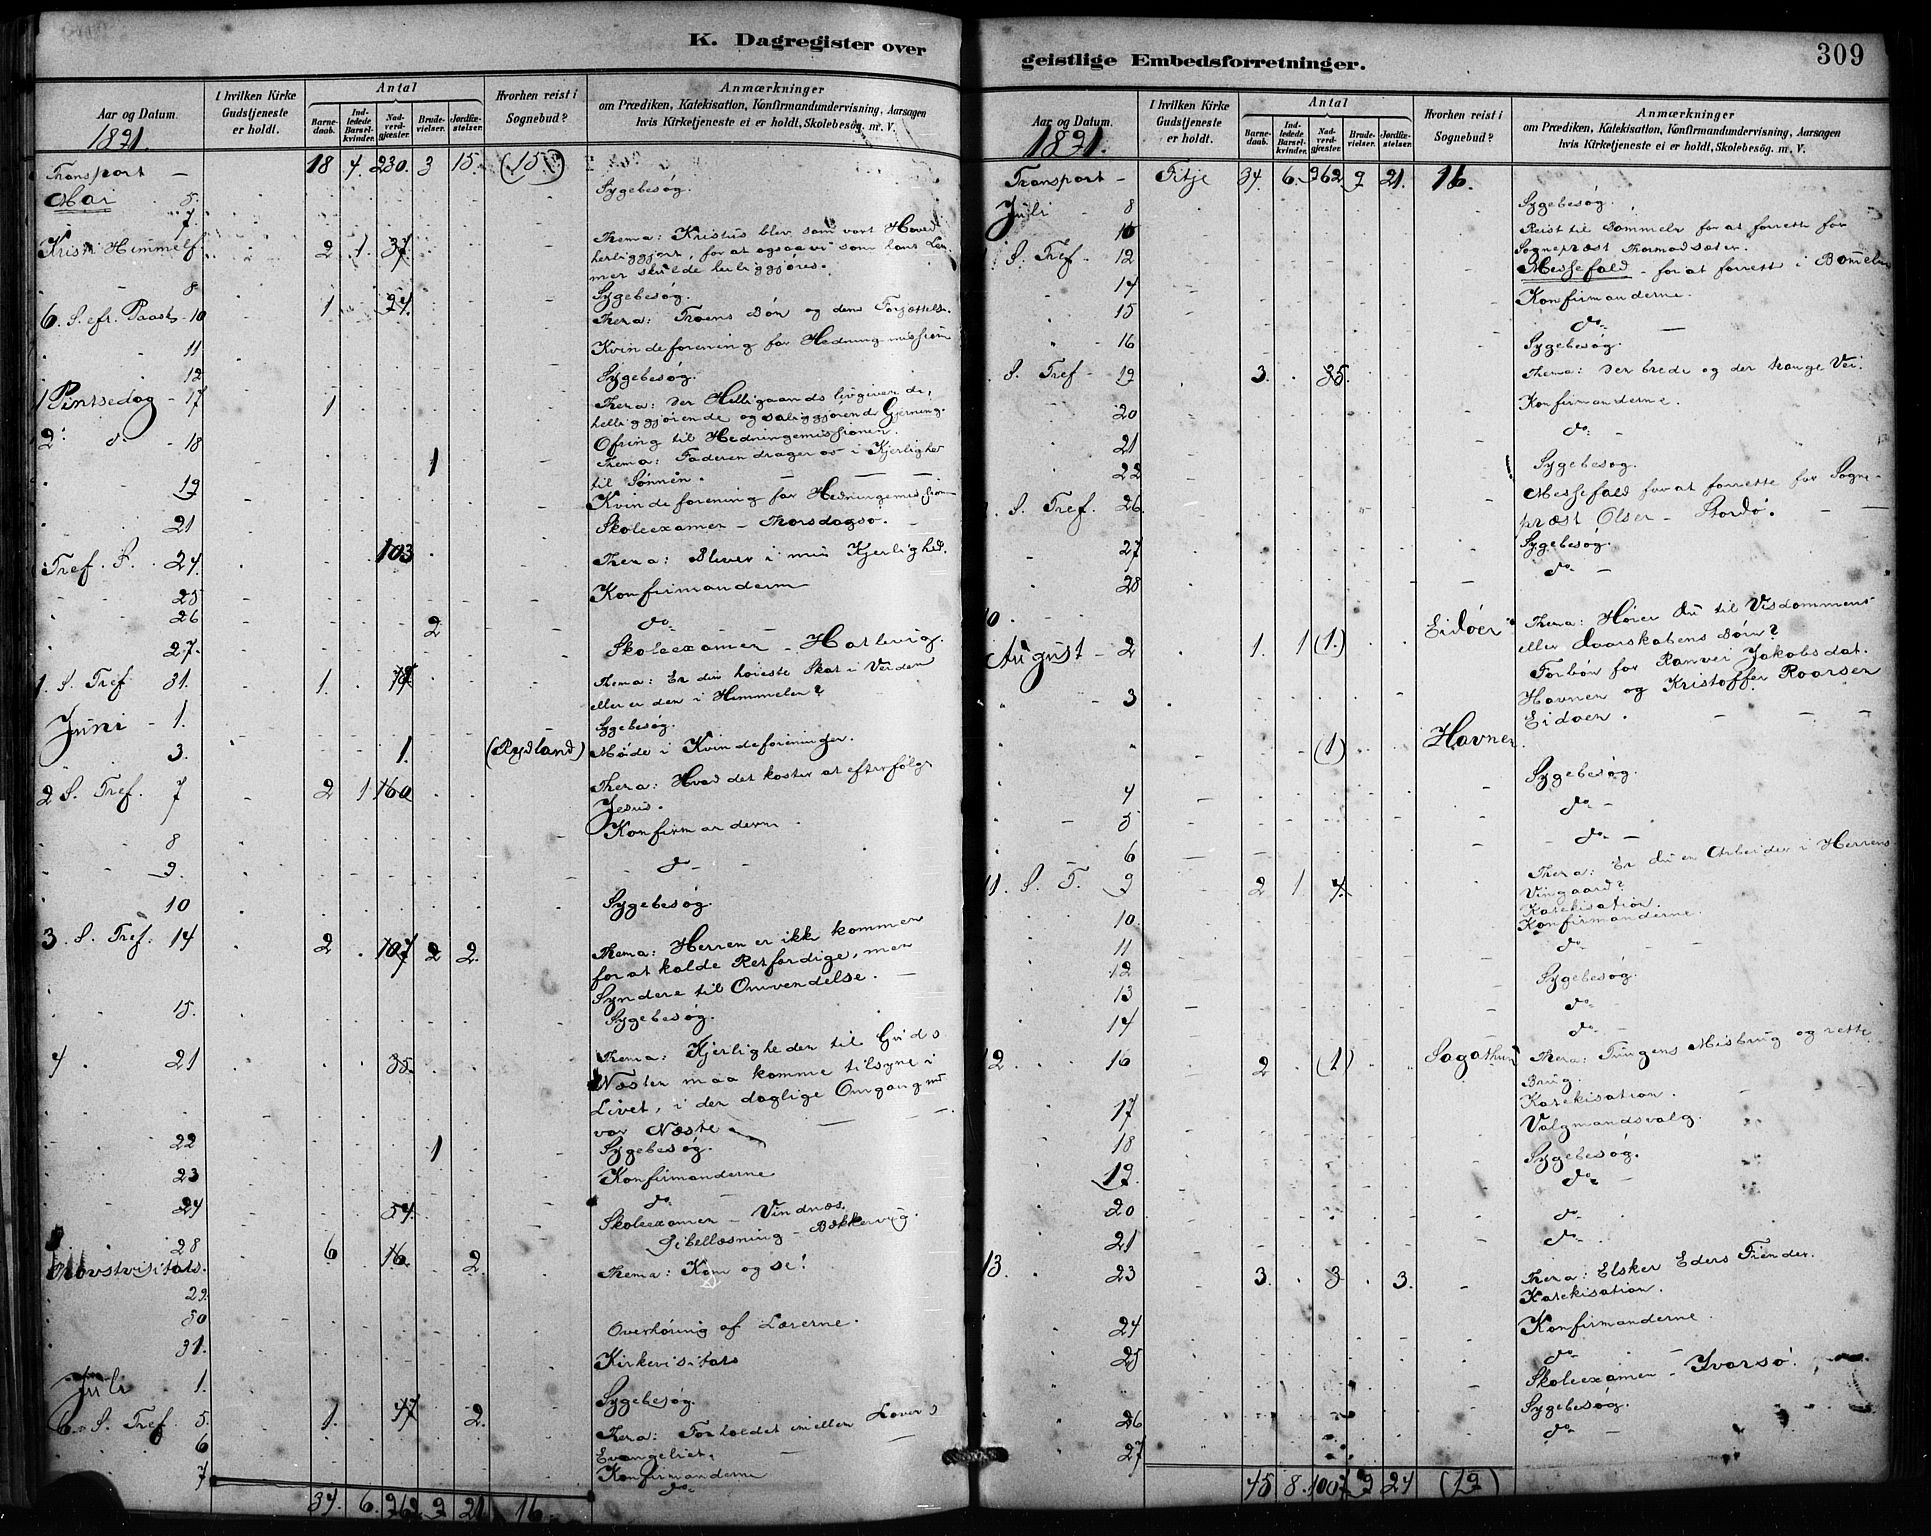 K. Dagregister over
Aar og Datum.
1891.
I hvilken Kirke
Gudstjeneste
er holdt.
Antal
Barne-
daab.
Ind-
ledede
Barsel-
kvinder.
Nad-
verd-
gjæster.
Brude-
vielser.
Jordfæ-
stelser.
Hvorhen reist i
Sognebud?
Anmærkninger
om Prædiken, Katekisation, Konfirmandundervisning, Aarsagen
hvis Kirketjeneste ei er holdt, Skolebesøg. m. V.
Transport — 18 4. 230. 3 15. (15.)
Mai 5. Sygebesøg.
7.
Kristi Himmelf. 2 1 37. Thema: Kristus blev som vort Hoved
herliggjort, for at ogsaa vi som hans Lem-
mer skulde herliggjøres.
8 Sygebesøg.
6. S. efr. Paaske 10 1 24. Thema: Troens Bøn og dens Forjættelse.
11 Kvindeforening for Hedningmissionen
12 Sygebesøg.
1 Pintsedag - 17 1 Thema: Der Helligaands livgivende,
helliggjørende og saliggjørende Gjerning.
Ofring til Hedningemissionen.
2. d. - 18 1 Thema: Faderen drager os i Kjerlighed
til Sønnen.
19 Kvindeforening for Hedningemissionen
21 Skoleexamen - Thorsdagsø.
Tref. S. 24. 103 Thema: Bliver i min Kjerlighed.
25 Konfirmanderne
26 2 do
27. Skoleexamen - Hatlevig.
1. S. Tref 31. 1. 78 Thema: Er din høieste Skat i Verden
eller er den i Himmelen?
Juni - 1. Sygebesøg.
3. 1. (Rydland) Møde i Kvindeforeninger.
2 S. Tref. 7 2 1 160 Thema: Hvad det koster at efterfølge
Jesus.
8 Konfirmanderne.
9. do
10 Sygebesøg.
3. S. Tref. 14 2 107 2 2. Thema: Herren er ikke kommen
for at kalde Retfærdige, men
Syndere til Omvendelse.
15. Sygebesøg.
4 21 35. Thema: Kjerligheden til Guds
Næsten maa komme tilsyne i
Livet, i der daglige Omgang med
vor Næste.
22 1 Sygebesøg.
23 Konfirmanderne
24 54. do
Skoleexamen - Vindnæs.
Bibellæsning - Bækkervig.
28 6 16. 2. Thema: Kom og se!
Provstvisitats.
29.
30 Overhøring af Lærerne.
31. Kirkevisitats
Juli 1. Sygebesøg.
6. S. Tref. 5. 1. 47 2. Thema: Forholdet mellem Loven &
Evangeliet.
6 Konfirmanderne
7 do
34. 6. 962. 9 21. 16.
geistlige Embedsforretninger.
309
Aar og Datum.
1891.
I hvilken Kirke
Gudstjeneste
er holdt.
Antal
Barne-
daab.
Ind-
ledede
Barsel-
kvinder.
Nad-
verd-
gjæster.
Brude-
vielser.
Jordfæ-
stelser.
Hvorhen reist i
Sognebud?
Anmærkninger
om Prædiken, Katekisation, Konfirmandundervisning, Aarsagen
hvis Kirketjeneste ei er holdt, Skolebesøg. m. V.
Transport - Fitje 34. 6. 962. 9 21. 16.
Juli 8 Sygebesøg.
10 Reist til Bømmelø for at forrette for
Sognepræst Thormodsæter.
S. Tref - 12 Messefald - for at forrette i Bømmelø
14 Konfirmanderne.
15 do
16 Sygebesøg.
S. Tref - 19 3. 35. Thema: Den brede og der trange Vei.
20 Konfirmanderne.
21 do
22 Sygebesøg.
S. Tref. 26. Messefald for at forrette for Sogne-
præst Olsen - Stordø.
27 Sygebesøg.
28 do
10.
August - 2 1. 1 (1.) Eidøen Thema: Hører du til Visdommens
eller Daarskabens Børn?
Forbøn for Ranvei Jakobsdat.
3 Havnen og Kristoffer Roarsen
Eidøen.
(1) Havnen.
4 Sygebesøg.
5 do
6 do
11. S. T. 9 2 1 4. Thema: Er du en Arbeider i Herrens
Vingaard?
Katekisation.
10. Konfirmanderne.
11 do
12 Sygebesøg.
13 do
14 do
12 16 2 (1) Sagathun Thema: Tungens Misbrug og rette
Brug
Katekisation.
17 Valgmandsvalg.
18 Sygebesøg.
19. do
20 do
21 do
13. 23 3. 3 3. Thema: Elsker Eders Fiender.
Katekisation.
24 Konfirmanderne.
25 do
Skoleexamen - Ivarsø.
26 Sygebesøg.
27 do
45 8. 1007 9 24 (19)